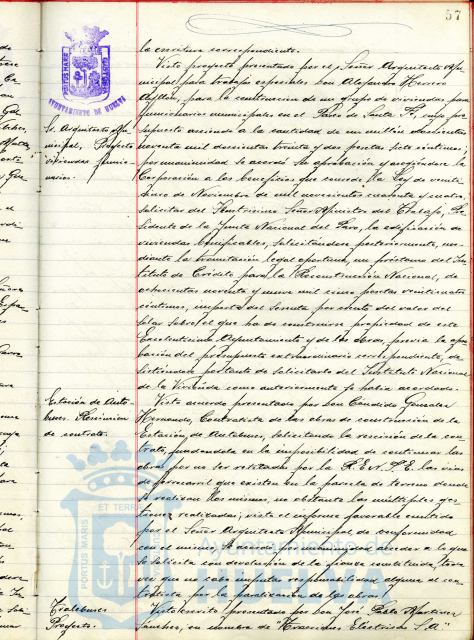 57
la escritura correspondiente.
Visto proyecto presentado por el Señor Arquitecto Mu-
nicipal para trabajos especiales Don Alejandro Herrero
Ayllón, para la construcción de un grupo de viviendas para
funcionarios municipales en el Paseo de Santa Fe, cuyo pre-
supuesto asciende a la cantidad de un millón doscientas
noventa mil doscientas treinta y dos pesetas, siete céntimos,
por unanimidad se acordó su aprobación y acogiéndose la
Corporación a los beneficios que concede la Ley de veinti-
cinco de Noviembre de mil novecientos cuarenta y cuatro,
solicitar del Ilustrísimo Señor Ministro del Trabajo, Pre-
sidente de la Junta Nacional del Paro, la edificación de
viviendas bonificables, solicitándose posteriormente, me-
diante la tramitación legal oportuna, un préstamo del Ins-
tituto de Crédito para la Reconstrucción Nacional, de
ochocientas noventa y nueve mil cinco pesetas veinticuatro
céntimos, importe del sesenta por ciento del valor del
solar sobre el que ha de construirse propiedad de este
Excelentísimo Ayuntamiento y de las obras, previa la apro-
bación del presupuesto extraordinario correspondiente, de-
sistiendo por tanto de solicitarlo del Instituto Nacional
de la Vivienda como anteriormente se había acordado.
Visto acuerdo presentado por Don Cándido González
Hernando, Contratista de las obras de construcción de la
Estación de Autobuses, solicitando la rescisión de la con-
trata, fundándola en la imposibilidad de continuar las
obras por no ser retiradas por la R.E.N.F.E. las vías
de ferrocarril que existen en la parcela de terreno donde
se realizan las mismas, no obstante las múltiples ges-
tiones realizadas; visto el informe favorable emitido
por el Señor Arquitecto Municipal, de conformidad
con el mismo, se acordó por unanimidad acceder a lo que
se solicita y la devolución de la fianza constituida, toda
vez que no cabe imputar responsabilidad alguna al con-
tratista por la paralización de las obras.
Visto escrito presentado por Don José Pablo Martínez
Sánchez, en nombre de "Atracciones Eléctricas S.A"
PORTUS MARIS
AYUNTAMIENTO DE HUELVA
Sr. Arquitecto Mu-
nicipal, Proyecto
viviendas funcio-
narios.
Estación de Auto-
buses. Rescisión
de contrato.
Trolebuses
Proyecto.
PORTUS MARIS ET TERRAE
Ayuntamiento de
HUELVA